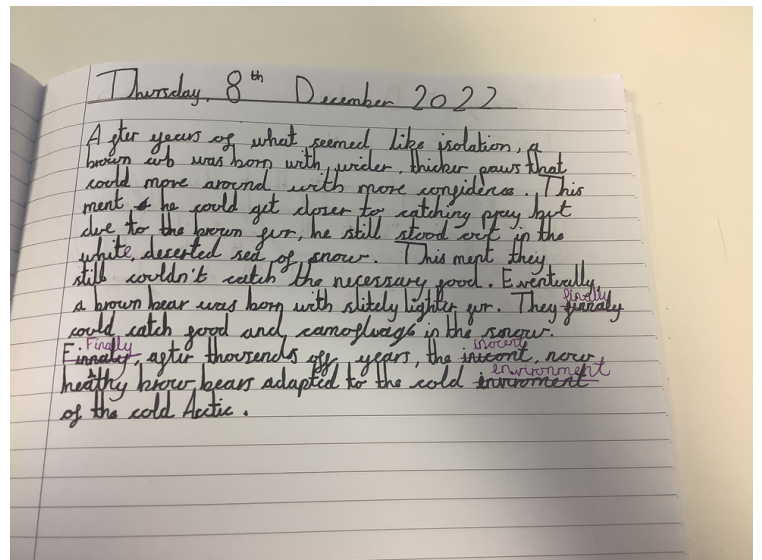 Thursday, 8th December 2022
After years of what seemed like isolation, a
brown cub was born with wider, thicker paws that
could move around with more confidence. This
ment he could get closer to catching pray but
due to the brown fur, he still stood out in the
white, deserted sea of snow. This ment they
still couldn't catch the necessary food. Eventually
a brown bear was born with slitely lighter fur. They finnaly finally
could catch food and camofluage in the snow.
Finnaly Finally, after thousends off years, the inicont inocent, now,
healthy brow bears adapted to the cold invroment environment
of the cold Arctic.